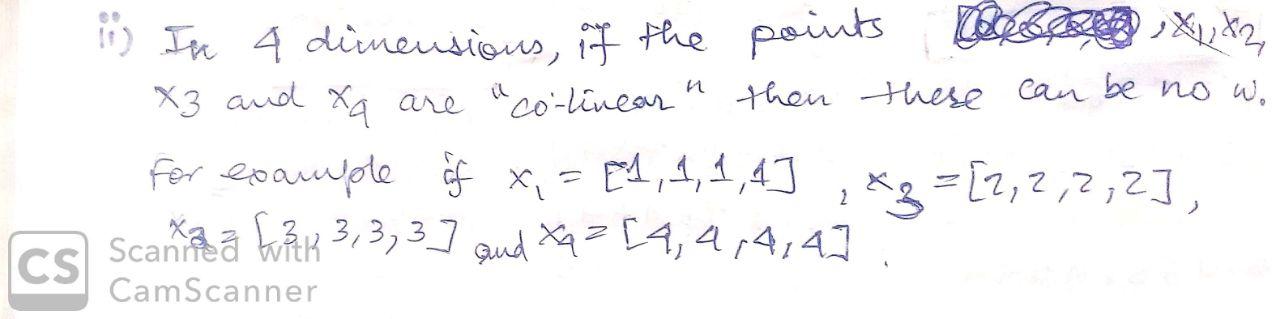 ii) In 4 dimensions, if the points , x1, x2,
x3 and x4 are "co-linear" then these can be no w.
For example if x1 = [1,1,1,1] , x3 = [2,2,2,2],
x2 = [3, 3,3,3] and x4 = [4,4,4,4] .
CS Scanned with
CamScanner